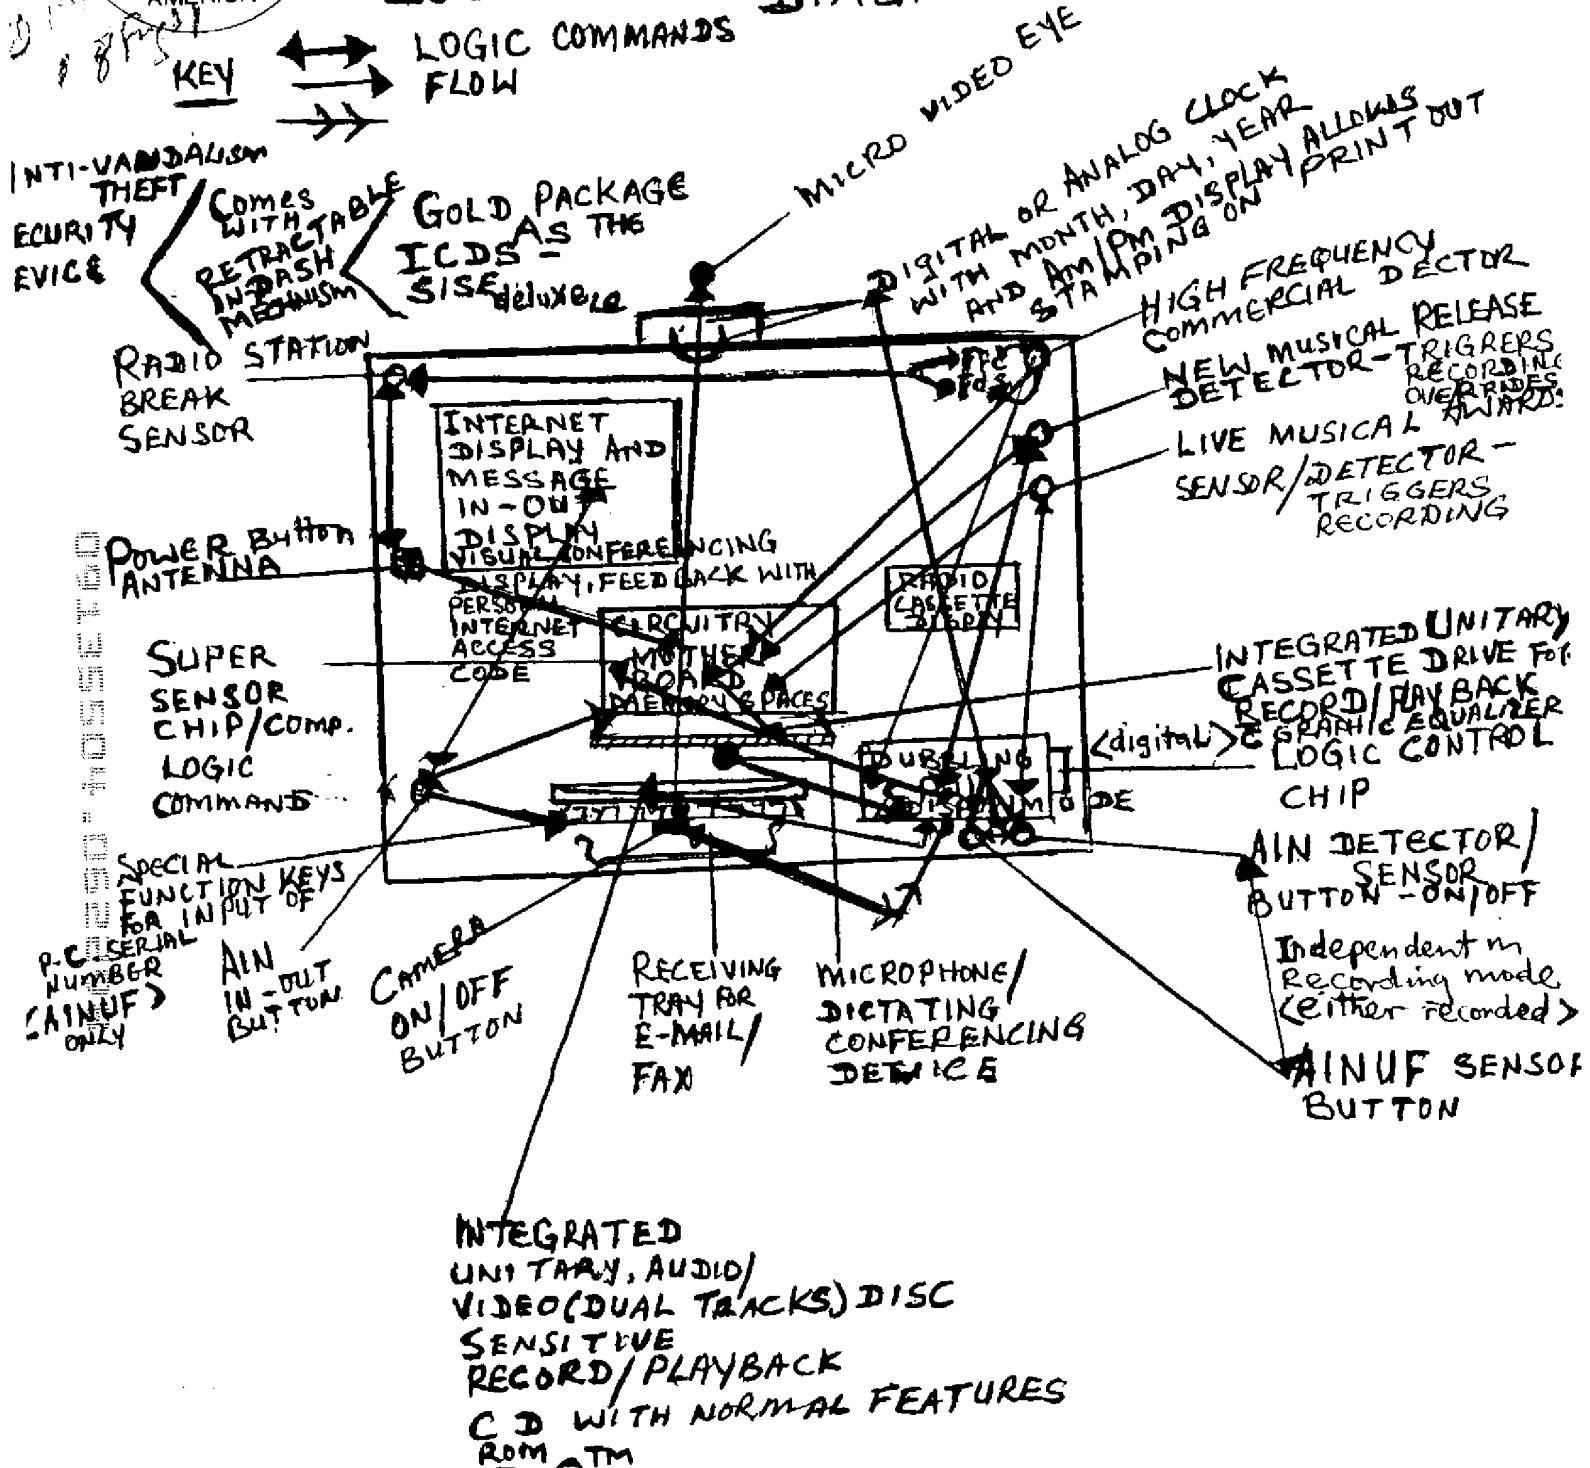 AMERICA
KEY
LOGIC COMMANDS
FLOW
MICRO VIDEO EYE
INTI-VANDALISM
THEFT
ECURITY
EVICE
COMES
WITH
RETRACTABLE
IN-DASH
MECHNISM
GOLD PACKAGE
AS THE
ICDS -
SISE deluxe
DIGITAL OR ANALOG CLOCK
WITH MONTH, DAY, YEAR
AND AM/PM DISPLAY ALLOWS
STAMPING ON PRINT OUT
HIGH FREQUENCY
COMMERCIAL DECTOR
NEW MUSICAL RELEASE
DETECTOR-TRIGRERS
RECORDING
OVERRIDES
LIVE MUSICAL AWARDS
SENSOR/DETECTOR-
TRIGGERS
RECORDING
RADIO STATION
BREAK
SENSOR
INTERNET
DISPLAY AND
MESSAGE
IN-OUT
DISPLAY
VISUAL CONFERENCING
DISPLAY, FEEDBACK WITH
PERSONAL
INTERNET
ACCESS
CODE
POWER Button
ANTENNA
RADIO
CASSETTE
DISPLAY
CIRCUITRY
MOTHER
BOARD
MEMORY SPACES
SUPER
SENSOR
CHIP/COMP.
LOGIC
COMMAND
INTEGRATED UNITARY
CASSETTE DRIVE FOR
RECORD/PLAYBACK
GRAPHIC EQUALIZER
<digital>
LOGIC CONTROL
CHIP
DUBBLING
MODE
SPECIAL
FUNCTION KEYS
FOR INPUT OF
P.C. SERIAL
NUMBER
<AINUF>
ONLY
AIN
IN-OUT
BUTTON
CAMERA
ON/OFF
BUTTON
RECEIVING
TRAY FOR
E-MAIL/
FAX
MICROPHONE/
DICTATING
CONFERENCING
DEVICE
AIN DETECTOR/
SENSOR
BUTTON-ON/OFF
Independent in
Recording mode
<either recorded>
AINUF SENSOR
BUTTON
INTEGRATED
UNITARY, AUDIO/
VIDEO(DUAL TRACKS) DISC
SENSITIVE
RECORD/PLAYBACK
CD WITH NORMAL FEATURES
ROM